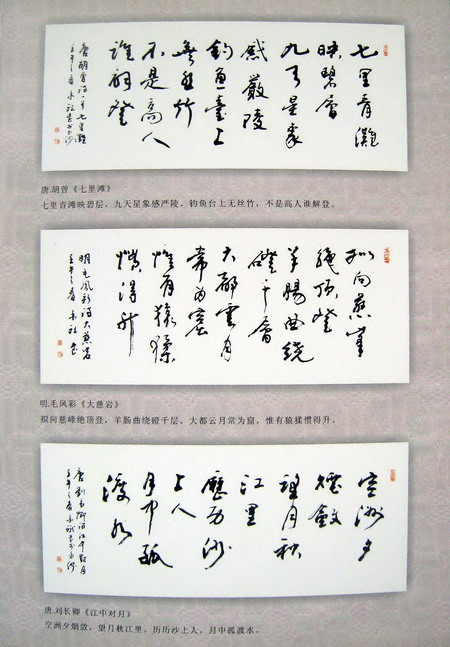 七里青灘
映碧層
九天星象
感嚴陵
釣魚臺上
無絲竹
不是高人
誰解登
唐胡曾詩一首七里灘
壬午之春
唐.胡曾《七里滩》
七里青滩映碧层，九天星象感严陵。钓鱼台上无丝竹，不是高人谁解登。
拟向慈峯
絶頂登
羊腸曲繞
磴千層
大都雲月
常為窟
惟有猿猱
慣得升
明毛鳳彩詩大慈岩
壬午之春
明.毛凤彩《大慈岩》
拟向慈峰绝顶登，羊肠曲绕磴千层。大都云月常为窟，惟有狼猱惯得升。
空洲夕
煙斂
望月秋
江里
歷歷沙
上人
月中孤
渡水
唐劉長卿詩江中對月
壬午之春
唐.刘长卿《江中对月》
空洲夕烟敛，望月秋江里。历历沙上人，月中孤渡水。